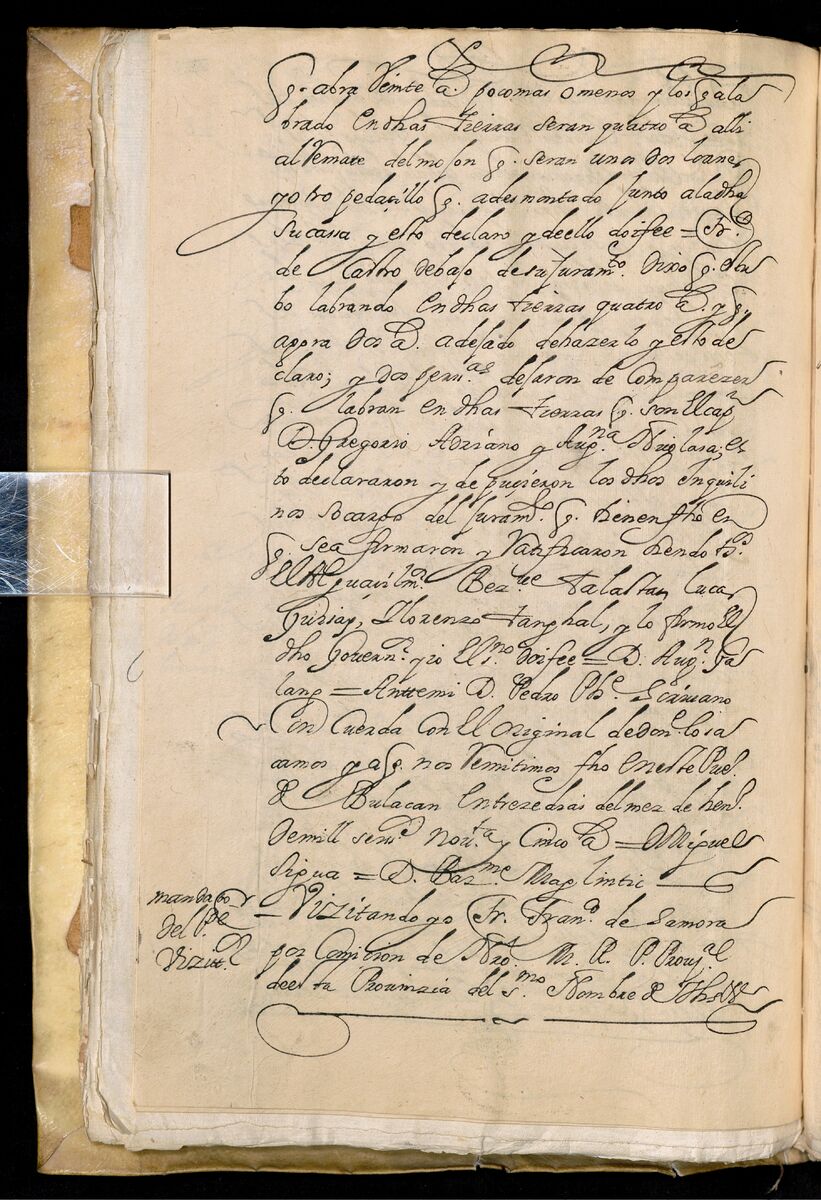 q.e abra Veinte a.s pocomas omenos y los q.e ala
brado en dhas tierras seran quatro a.s alli
al Remate del moson q.e seran unos dos loanes
y otro pedasillo q.e adesmontado junto aladha
su cassa y esto declaro y de ello doi fee = Fr.co
de Castro debajo de su Juram.to Dixo q.e estu
bo labrando en dhas tierras quatro a.s y q.e
agora dos a.s adejado de hazerlo y esto de
claro; y dos persn.as dejaron de Comparezer
q.e labran en dhas tierras q.e son El cap.n
D. Gregorio Adriano y Aug.na Nicolasa; es
to declararon y depusieron los dhos inquili
nos so cargo del Juram.to q.e tienen fho en
q.e se afirmaron y Ratificaron siendo t.os
El Alguasil m.or Bez.te Talastas, lucas
Guiap, y lorenzo tanghal, y lo firmo El
dho Govern.or y io El s.no doi fee = D. Aug.n Ga
lang = Antemi D. Pedro Ph.e Scrivano
Con Cuerda con El original de don.e lo sa
camos y a q.e nos Remitimos fho en este Pue.o
de Bulacan en trez dias del mez de hen.o
de mill seis.s nov.ta y Cinco a.s = D Miguel
Sigua = D. Bar.me Maglintic
mandatos
del P.e
Vizit.or
= Vizitando yo Fr. Fran.co de Zamora
por Comicion de Nro. M. R. P. Prov.al
de esta Provinzia del s.mo Nombre de Jhs